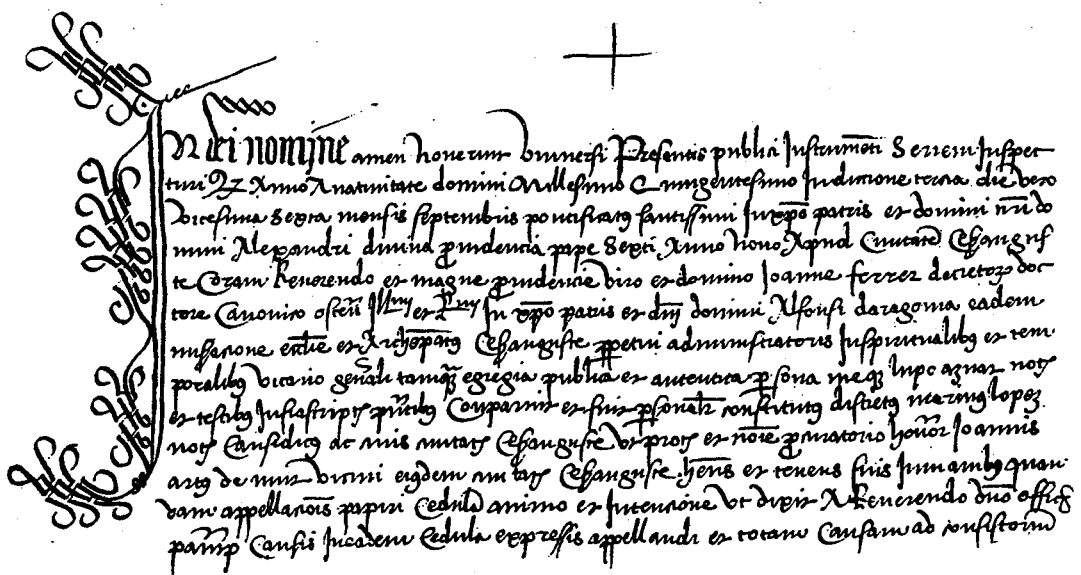 IN dei nomine amen noverint Universi Presentis publici Instrumenti Seriem Inspec
turi Anno A nativitate domini Millesimo Quingentesimo Indictione tercia die vero
Vicesima Sexta mensis septembris pontificatus santissimi In xpo patris et domini nri do
mini Alexandri divina providencia pape Sexti Anno Nono Apud Civitatem Cesaraugus
te Coram Reverendo et magne providencie viro et domino Joanne ferrer decretorum doc
tore Canonico oscen Illmi et Rmi In xpo patris et dni domini Alfonsi daragonia eadem
miseracione ecclie et Archiepatus Cesarauguste perpetui administratoris In spiritualibus et tem
poralibus vicario generali tamquam egregia publica et autentica persona meque lupo aznar notº
et testibus Infrascriptis pntibus Comparuit et fuit personalr constitutus discretus martinus lopez
nots Causidicus ac civis civitatis Cesarauguste Ut procr et noie procuratorio honor Joannis
de vicini eiusdem civitatis Cesarauguste hens et tenens suis In manibus quan
dam appellacionis papiri Cedulam animo et Intencione Ut dixit A Reverendo dno offici
Causis In eadem Cedula expressis appellandi et totam Causam ad consistorium